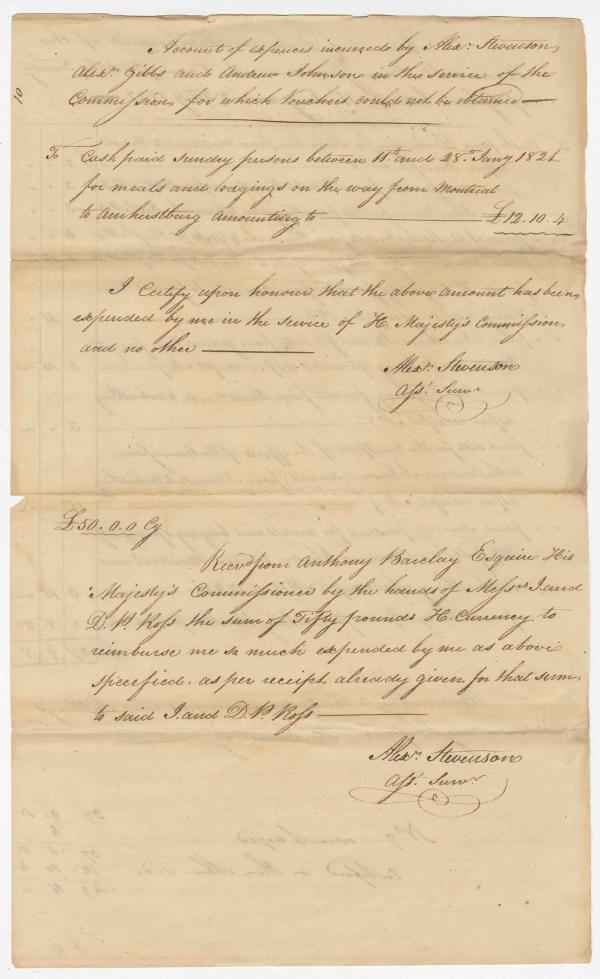 Account of expences incurred by Alexr. Stevenson,
Alexr. Gibbs and Andrew Johnson in the service of the
Commission, for which Vouchers could not be obtained —
10
To Cash paid sundry persons between 11th and 28th Jany 1821
for meals and lodgings on the way from Montreal
to Amherstburg amounting to — £12.10.4
I Certify upon honour that the above amount has been
expended by me in the service of H. Majesty's Commission
and no other —
Alexr. Stevenson
Asst. Survr.
£50.0.0 Cy
Recevd from Anthony Barclay Esquire His
Majesty's Commissioner by the hands of Messrs J. and
D. P. Ross the sum of Fifty pounds H. Currency to
reimburse me so much expended by me as above
specefied. as per receipt already given for that sum
to said J. and D. P. Ross —
Alexr. Stevenson
Asst. Survr.